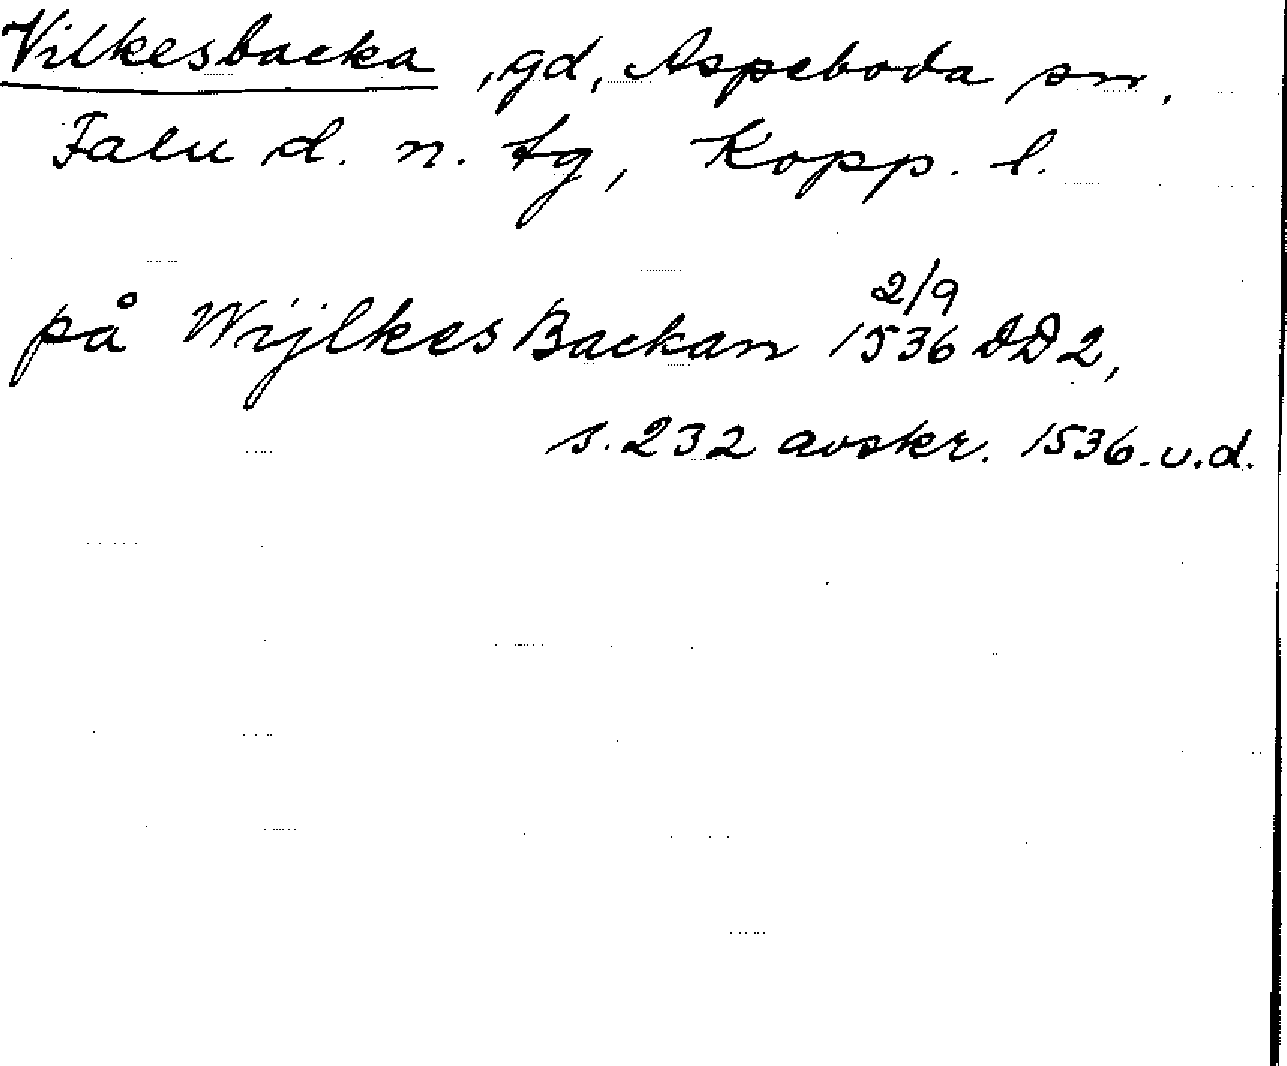 Vilkesbacka, gd, Aspeboda sn,
Falu d. n. tg, Kopp. l.
2/9
på Wijlkes Backan 1536 DD 2,
s. 232 avskr. 1536. u.d.